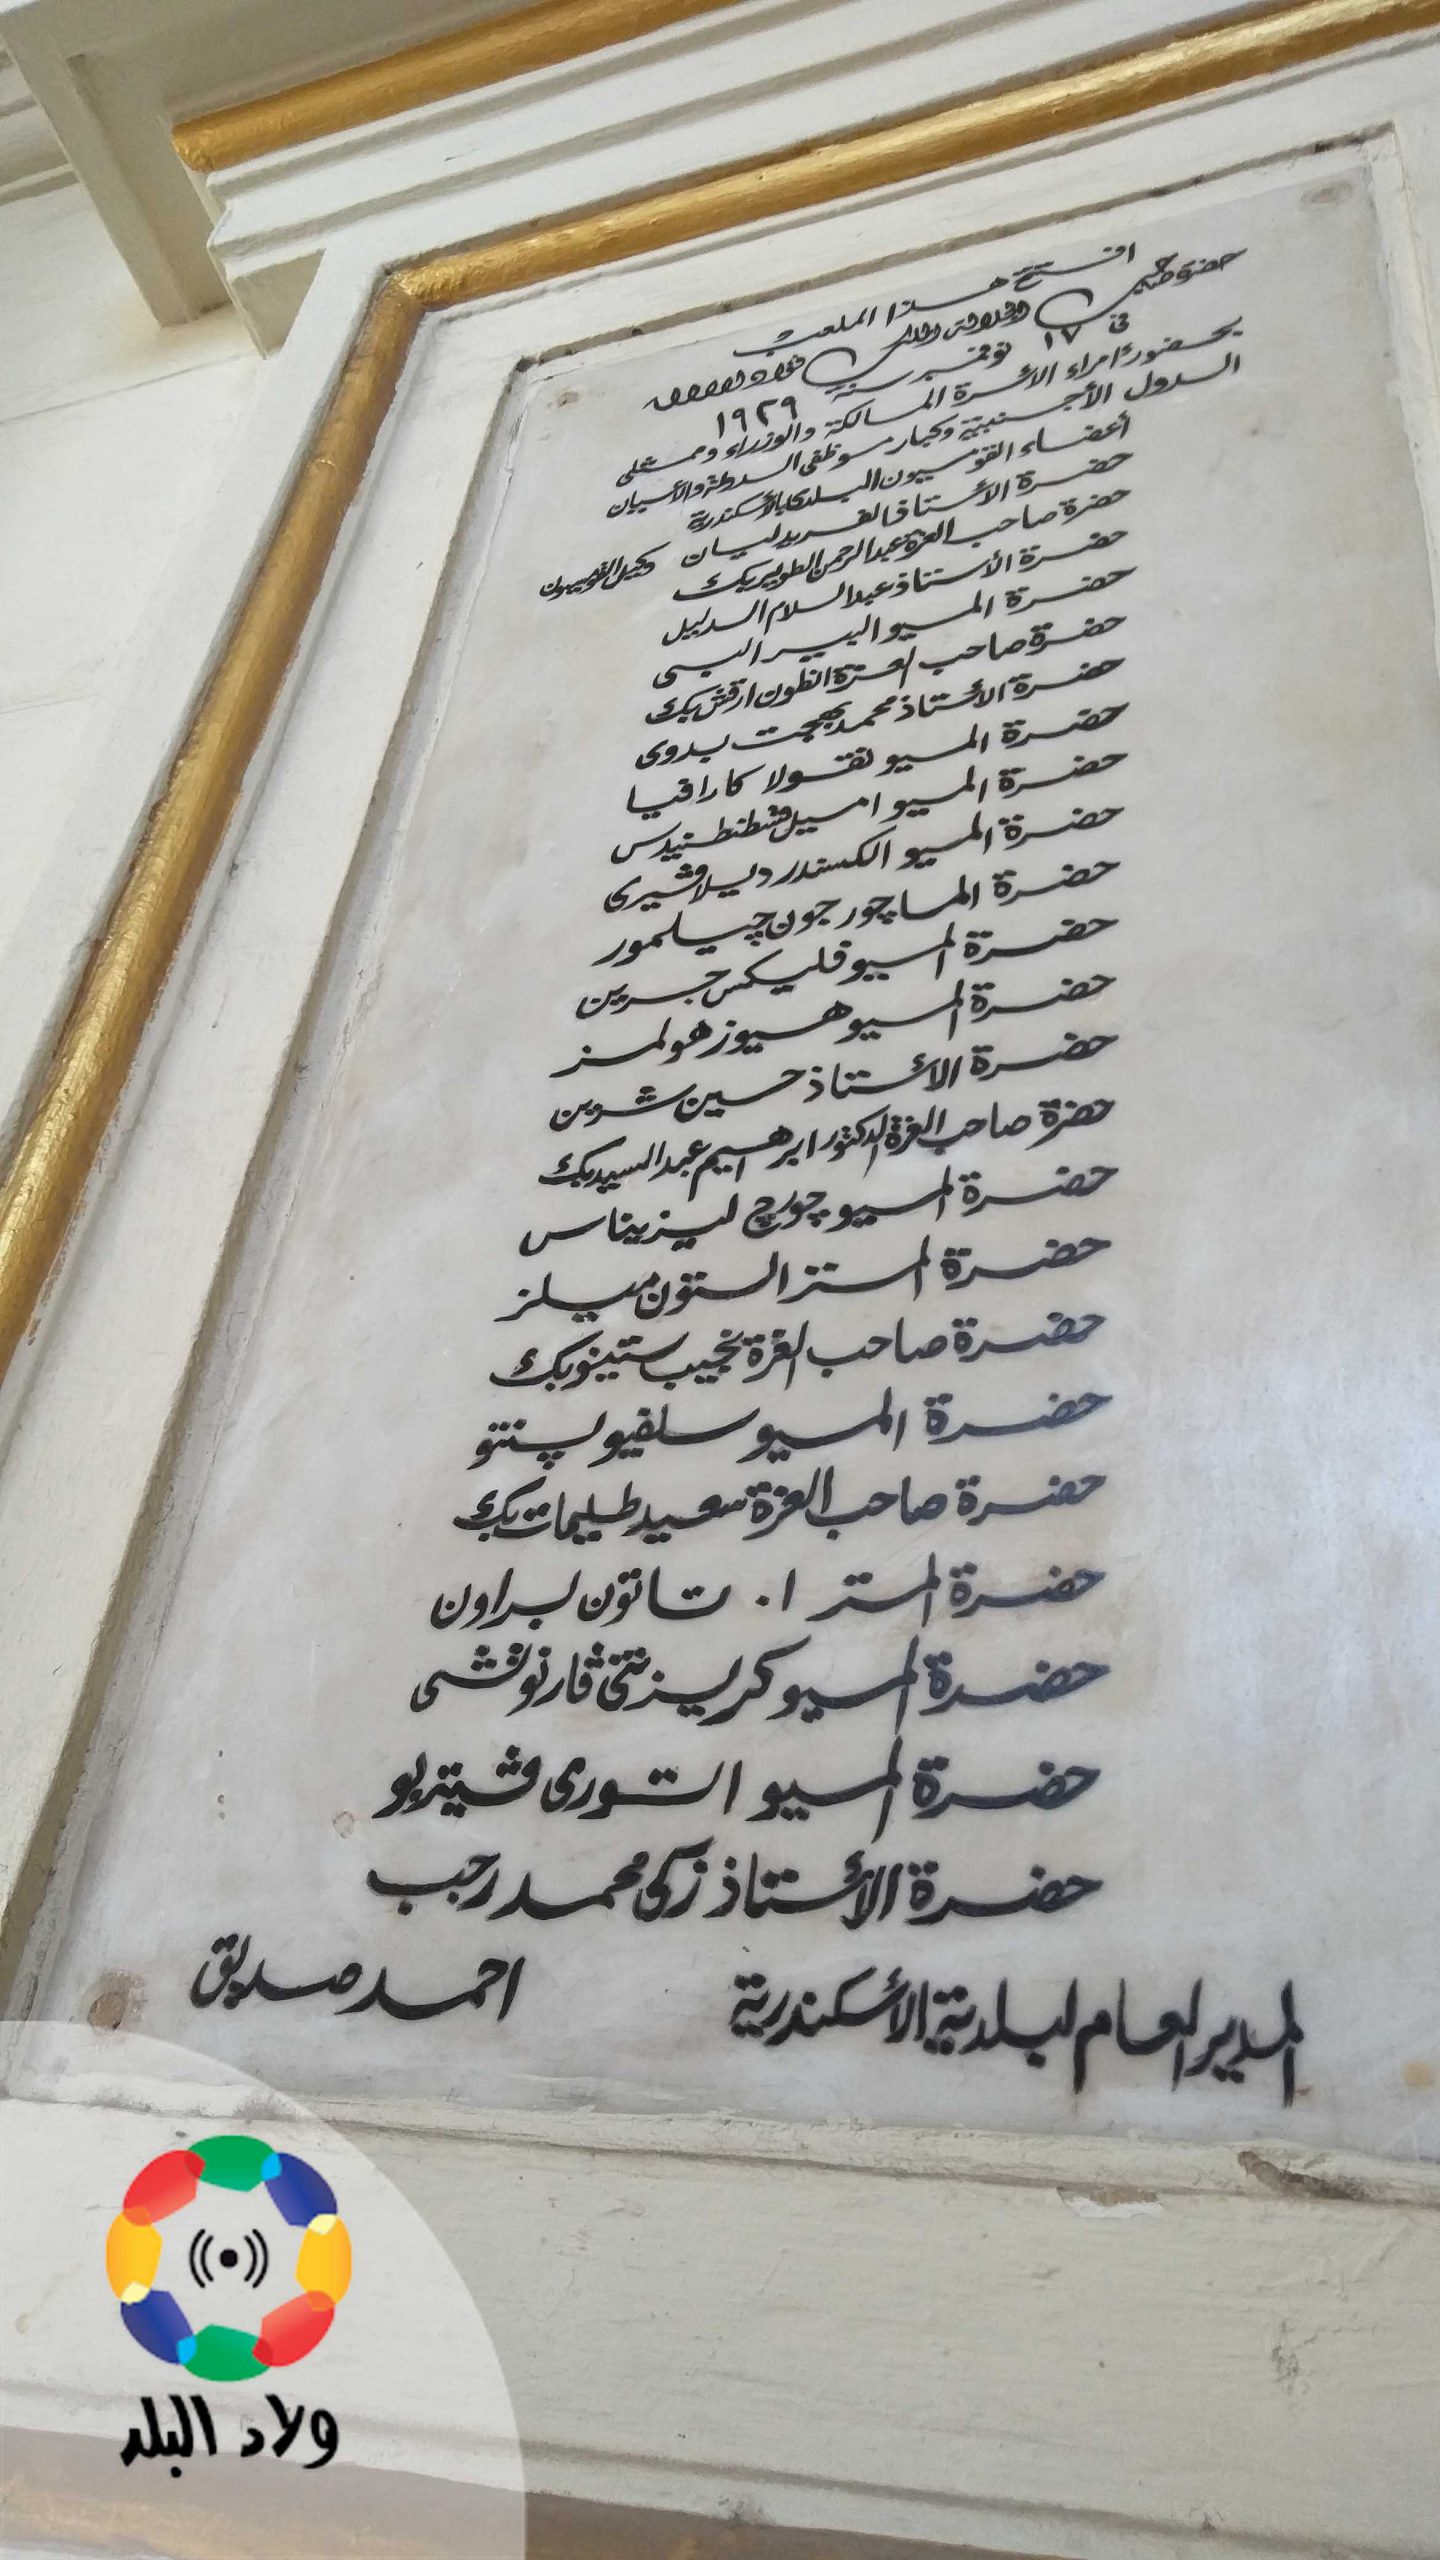 افتتح هذا الملعب
حضرة صاحب الجلالة الملك فؤاد الاول
فى ١٧ نوفمبر سنة ١٩٢٩
بحضور أمراء الأسرة المالكة والوزراء وممثلى
الدول الأجنبية وكبار موظفى الدولة والأعيان
أعضاء القومسيون البلدى بالأسكندرية
حضرة الأستاذ الفريد ليان وكيل القومسيون
حضرة صاحب العزة عبد الرحمن الطوير بك
حضرة الأستاذ عبد السلام الدليل
حضرة المسيو البير البى
حضرة صاحب العزة انطون ارقش بك
حضرة الأستاذ محمد بهجت بدوى
حضرة المسيو نقولا كارافيا
حضرة المسيو اميل قسطنطنيدس
حضرة المسيو الكسندر ديلاڤيرى
حضرة الماچور جون چيلمور
حضرة المسيو فليكس جرين
حضرة المسيو هيوز هولمز
حضرة الأستاذ حسين شرين
حضرة صاحب العزة الدكتور ابرهيم عبد السيد بك
حضرة المسيو چورچ ليزيناس
حضرة المستر الستون ميلز
حضرة صاحب العزة نجيب ستينو بك
حضرة المسيو سلفيو پنتو
حضرة صاحب العزة سعيد طليمات بك
حضرة المستر ا. تاتون براون
حضرة المسيو كريزنتى ڤارنوتشى
حضرة المسيو التورى ڤيتربو
حضرة الأستاذ زكى محمد رجب
المدير العام لبلدية الأسكندرية احمد صديق
ولاد البلد